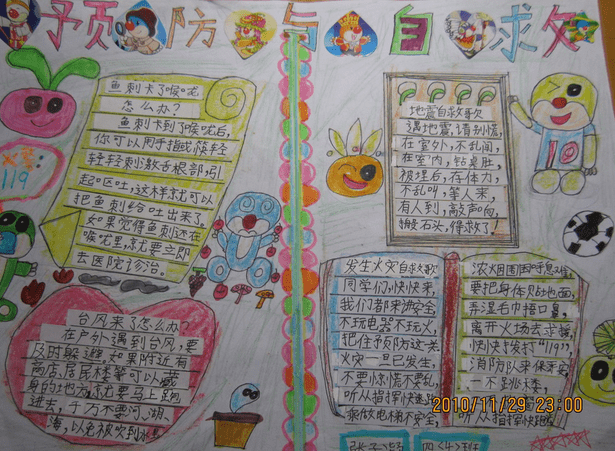 预防与自救
火警
119
鱼刺卡了喉咙
怎么办?
鱼刺卡到了喉咙后,
你可以用手指或筷轻
轻轻刺激舌根部,引
起呕吐,这样就可以
把鱼刺给吐出来了。
如果觉得鱼刺还在
喉咙里,就要立即
去医院诊治。
台风来了怎么办?
在户外遇到台风,要
及时躲避,如果附近有
商店、居民楼等可以藏
身的地方,就要马上跑
进去,千万不要河、湖、
海,以免被吹到水里
地震自救歌
遇地震,请别慌,
在室外,不乱闯,
在室内,钻桌肚,
被埋后,存体力,
不乱叫,等人来,
有人到,敲声响,
搬石头,得救了!
10
发生火灾自救歌
同学们,快快来,
我们都来讲安全,
不玩电器不玩火,
把住预防这一关
火灾一旦已发生,
不要惊慌不要乱,
听从指挥快速跑,
乘做电梯不安全,
浓烟围困呼息难,
要把身体贴地面,
弄湿毛巾捂口鼻,
离开火场去求援,
快快拨打"119",
消防队来保平安
一不跳楼,
听从指挥快跑
2010/11/29 23:00
四〈4〉班